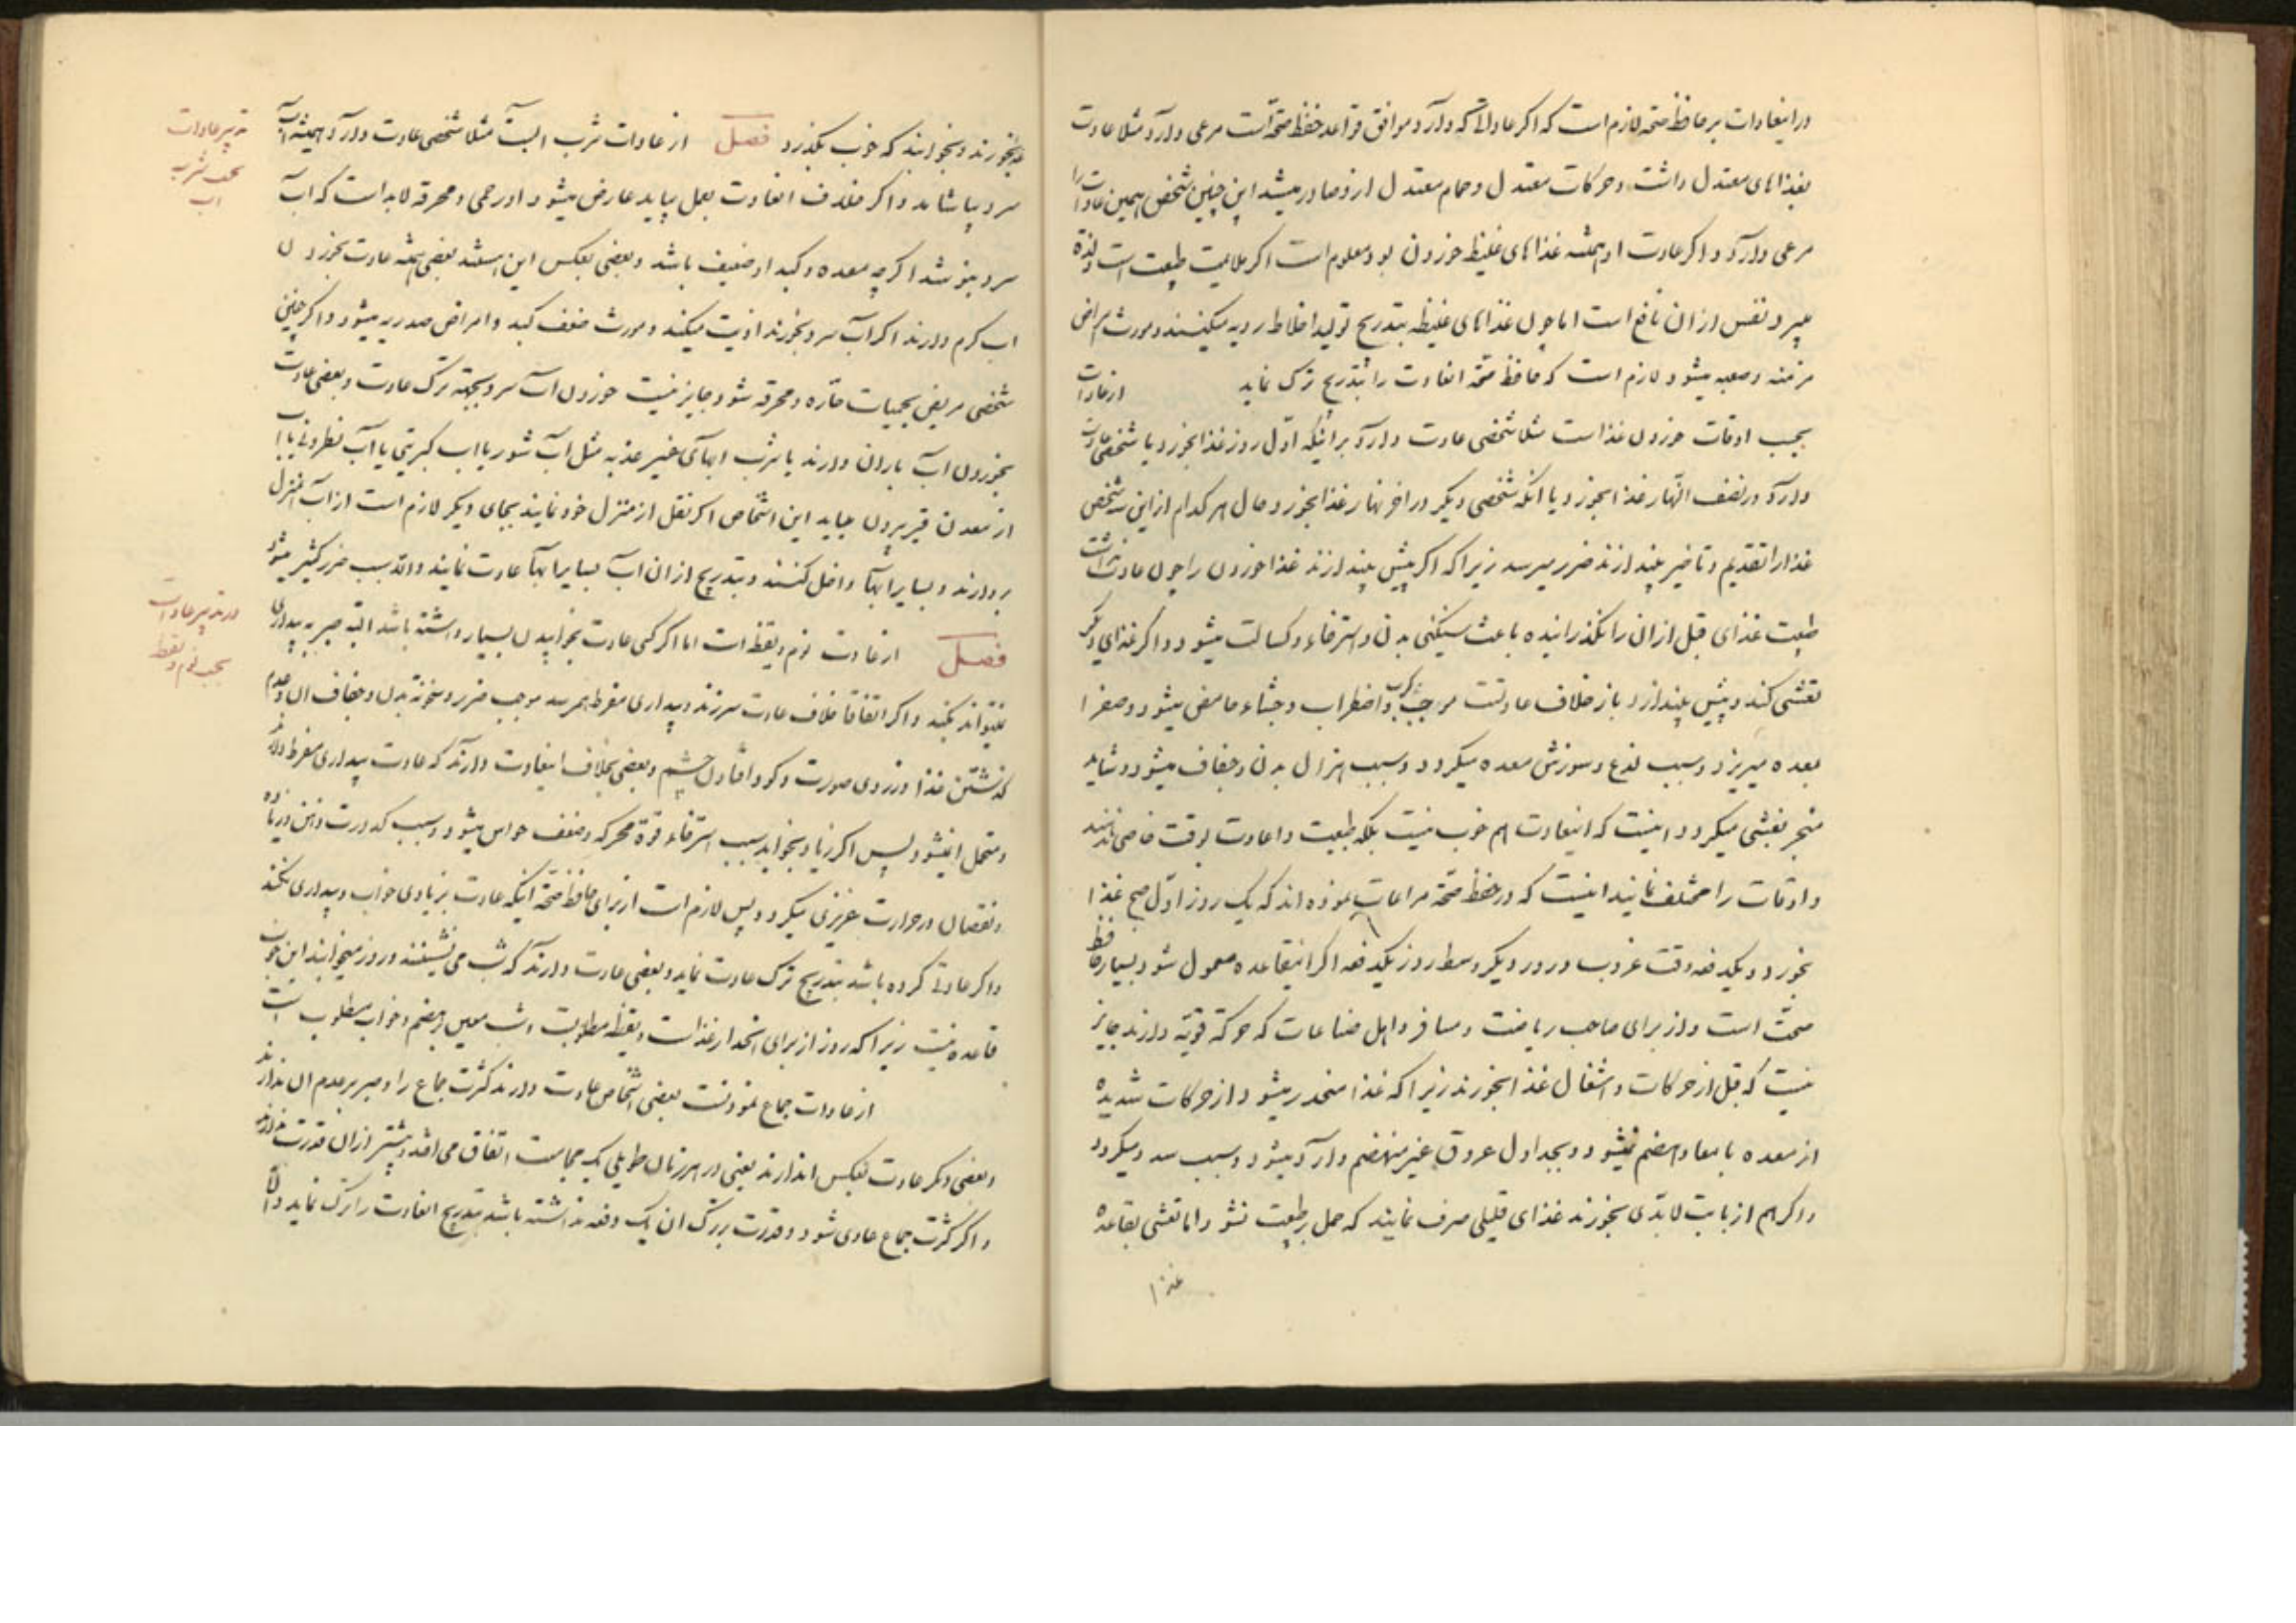 دراینعادات بر حافظ صحّة لازم است که اکر عاداتیکه دارد موافق قواعد حفظ صحّة است مرعی دارد مثلا عادت
بغذاهای معتدل داشت و حرکات معتدل و حمام معتدل ازو صادر میشد این چنین شخص همین عادات را
مرعی دارد و اکر عادت او همیشه غذاهای غلیظ خوردن بود معلوم است اکر ملایمت طبیعت است ولذة
میبرد نفس از ان نافع است اما چون غذاهای غلیظه بتدریج تولید اخلاط ردیه میکنند و مورث امراض
مزمنه و صعبه میشود لازم است که حافظ صحّة انعادت را بتدریج ترک نماید از عادات
بحسب اوقات خوردن غذاست مثلا شخصی عادت دارد براینکه اوّل روز غذا بخورد یا شخصی عادت
دارد در نصف النّهار غذا بخورد یا انکه شخصی دیکر در اخر نهار غذا بخورد حال هر کدام از این سه شخص
غذا را تقدیم و تاخیر بیندازند ضرر میرسد زیرا که اکر پیش بیندازند غذا خوردن را چون عادت نداشت
طبیعت غذای قبل از ان را نکذرانیده باعث سنکینی بدن و استرخاء و کسالت میشود و اکر غذای دیکر
تعشی کند و پیش بیندازد باز خلاف عادتست موجب کرب و اضطراب و جشاء حامض میشود و صفرا
بمعده میریزد و سبب لذع و سوزش معده میکردد و سبب هزال بدن و جفاف میشود و شاید
منجر بغشی میکردد اینست که اینعادت هم خوب نیست بلکه طبیعت را عادت بوقت خاصی ندهند
و اوقات را مختلف نمایند اینست که در حفظ صحّة مراعات نموده اند که یک روز اوّل صبح غذا
بخورد و یکدفعه وقت غروب و در روز دیکر وسط روز یکدفعه اکر اینقاعده معمول شود بسیار حافظ
صحّت است و از برای صاحب ریاضت و مسافر و اهل صناعات که حرکة قویّه دارند جایز
نیست که قبل از حرکات و اشغال غذا بخورند زیرا که غذا منحدر میشود از حرکات شدیده
از معده بامعاء و هضم نمیشود و بجداول عروق غیر منهضم وارد میشود و سبب سده میکردد
و اکر هم از بابت لابدّی بخورند غذای قلیلی صرف نمایند که حمل بر طبیعت نشود اما تعشی بقاعده
غذا
بخورند و بخوابند که خوب بکذرد فصل از عادات شرب ابست مثلا شخصی عادت دارد همیشه اب
سرد بیاشامد و اکر خلاف انعادت بعمل بیاید عارض میشود اورا حمی و محرقه لابد است که اب
سرد بنوشد اکرچه معده و کبد او ضعیف باشد و بعضی بعکس این هستند بعضی همیشه عادت بخوردن
اب کرم دارند اکر اب سرد بخورند اذیت میکند و مورث ضعف کبد و امراض صدریه میشود و اکر چنین
شخصی مریض بحمیات حارّه و محرقه شود جایز نیست خوردن اب سرد بجهة ترک عادت و بعضی عادت
بخوردن اب باران دارند یا شرب ابهای غیر عذبه مثل اب شور یا اب کبریتی یا اب نطرونی یا اب
از معدن قیر بیرون میاید این اشخاص اکر نقل از منزل خود نمایند بجای دیکر لازم است از اب انمنزل
بردارند و بسایر ابها داخل کنند و بتدریج از ان اب بسایر ابها عادت نمایند والّا سبب ضرر کثیر میشود
فصل از عادت نوم و یقظه است اما اکر کسی عادت بخوابیدن بسیار داشته باشد البتّه صبر به بیداری
نمیتواند بکند و اکر اتفاقا خلاف عادت سر زند و بیداری مفرط بهمرسد موجب ضرر و سخونة بدن و جفاف ان و عدم
کذشتن غذا و زردی صورت و کود افتادن چشم و بعضی بخلاف اینعادت دارند که عادت بیداری مفرط دارند
و متحمل انمیشود پس اکر زیاد بخوابد سبب استرخاء قوة محرکه و ضعف حواس میشود و سبب کدورت ذهن و زیاده
و نقصان در حرارت غریزی میکردد پس لازم است از برای حافظ صحّة اینکه عادت بزیادی خواب و بیداری نکند
و اکر عادتی کرده باشد بتدریج ترک عادت نماید و بعضی عادت دارند که شب می نشینند و روز میخوابند این خوب
قاعده نیست زیرا که روز از برای انحدار غذاست و یقظه مطلوبست و شب معین بر هضم و خواب مطلوب است
از عادات جماع نمودنست بعضی اشخاص عادت دارند کثرت جماع را و صبر بر عدم ان ندارند
و بعضی دیکر عادت بعکس اند دارند یعنی در هر زمان طویلی یک مجامعت اتفاق می افتد و بیشتر از ان قدرت ندارند
و اکر کثرت جماع عادی شود و قدرت بر ترک ان یک دفعه نداشته باشد بتدریج انعادت را ترک نماید والّا
تدبیر عادات
بحسب شرب
اب
در تدبیر عادات
بحسب نوم و یقظه